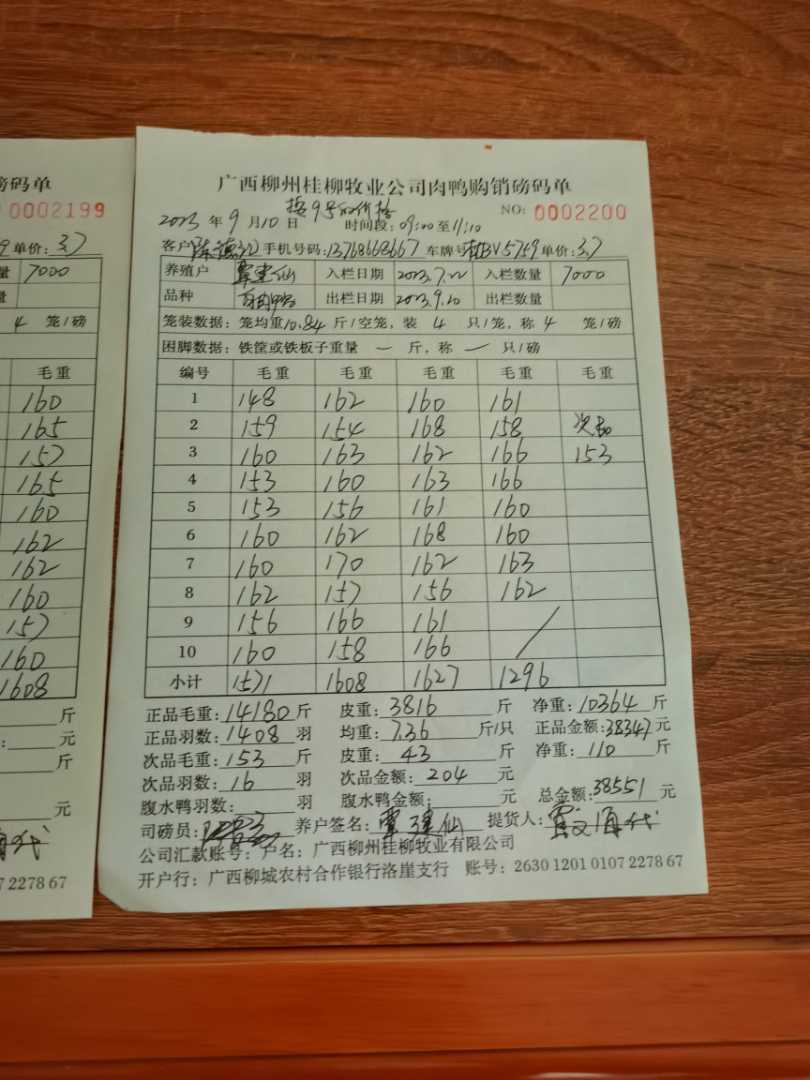 磅码单
0002199
单价:3.7
量 7000
量
4 笼/磅
毛重
160
165
157
165
160
162
162
160
157
160
1608
斤
元
斤
元
7 2278 67
广西柳州桂柳牧业公司肉鸭购销磅码单
按9号的价格
NO: 0002200
2023 年 9 月 10 日 时间段: 09:00 至 11:10
客户: 手机号码: 13768668667 车牌号: BV5759 单价: 3.7
养殖户 覃建仙 入栏日期 2023.7.22 入栏数量 7000
品种 出栏日期 2023.9.10 出栏数量
笼装数据: 笼均重 10.84 斤/空笼, 装 4 只/笼, 称 4 笼/磅
困脚数据: 铁筐或铁板子重量 一 斤, 称 一 只/磅
编号 毛重 毛重 毛重 毛重 毛重
1 148 162 160 161
2 159 154 168 158 次品
3 160 163 162 166 153
4 153 160 163 166
5 153 156 161 160
6 160 162 168 160
7 160 170 162 163
8 162 157 156 162
9 156 166 161 /
10 160 158 166
小计 1571 1608 1627 1296
正品毛重: 14180 斤 皮重: 3816 斤 净重: 10364 斤
正品羽数: 1408 羽 均重: 7.36 斤/只 正品金额: 38347 元
次品毛重: 153 斤 皮重: 43 斤 净重: 110 斤
次品羽数: 16 羽 次品金额: 204 元
腹水鸭羽数: 羽 腹水鸭金额: 元 总金额: 38551 元
司磅员: 养户签名: 覃建仙 提货人:
公司汇款账号: 户名: 广西柳州桂柳牧业有限公司
开户行: 广西柳城农村合作银行洛崖支行 账号: 2630 1201 0107 2278 67